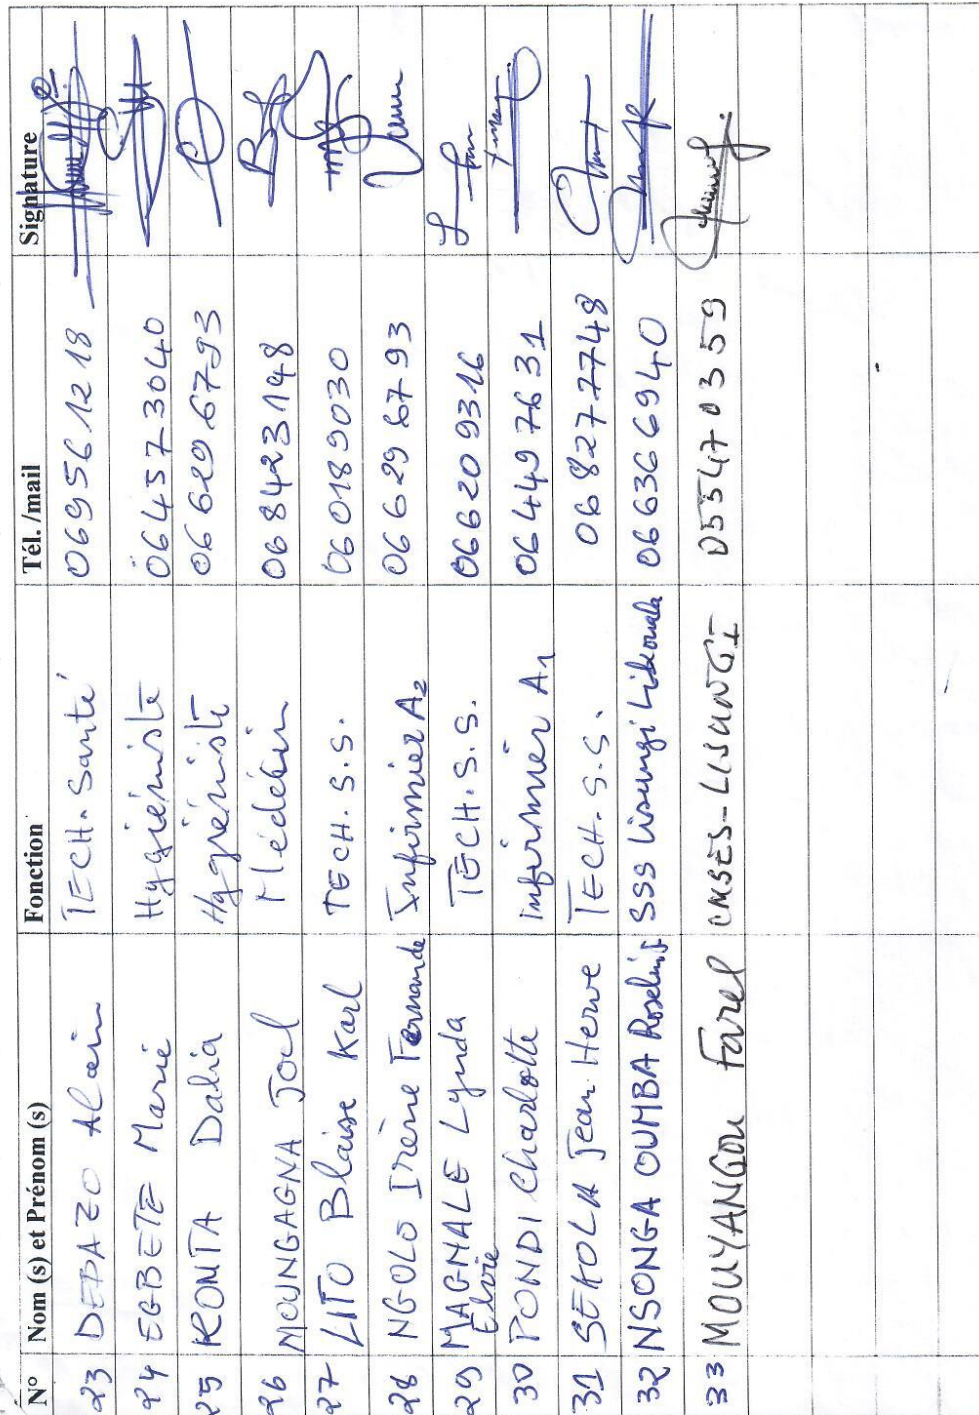 N° Nom (s) et Prénom (s) Fonction Tél. /mail Signature
23 DEBAZO Alain TECH. Santé 069561218
24 EGBETE Marie Hygiéniste 064573040
25 KONTA Dalia Hygiéniste 066296793
26 MOUNGAGNA Joel Médecin 068423148
27 LITO Blaise Karl TECH. S.S. 060189030
28 NGOLO Irène Fernande Infirmier A2 066296793
29 MAGNALE Lynda TECH. S.S. 066209316
Elvie
30 PONDI Charlotte infirmier A1 064497631
31 SEKOLA Jean Herve TECH. S.S. 068277748
32 NSONGA OUMBA Roselins SSS Lisungi Likouala 066366940
33 MOUYANGOU Farel CMSES-LISUNGI 055470359